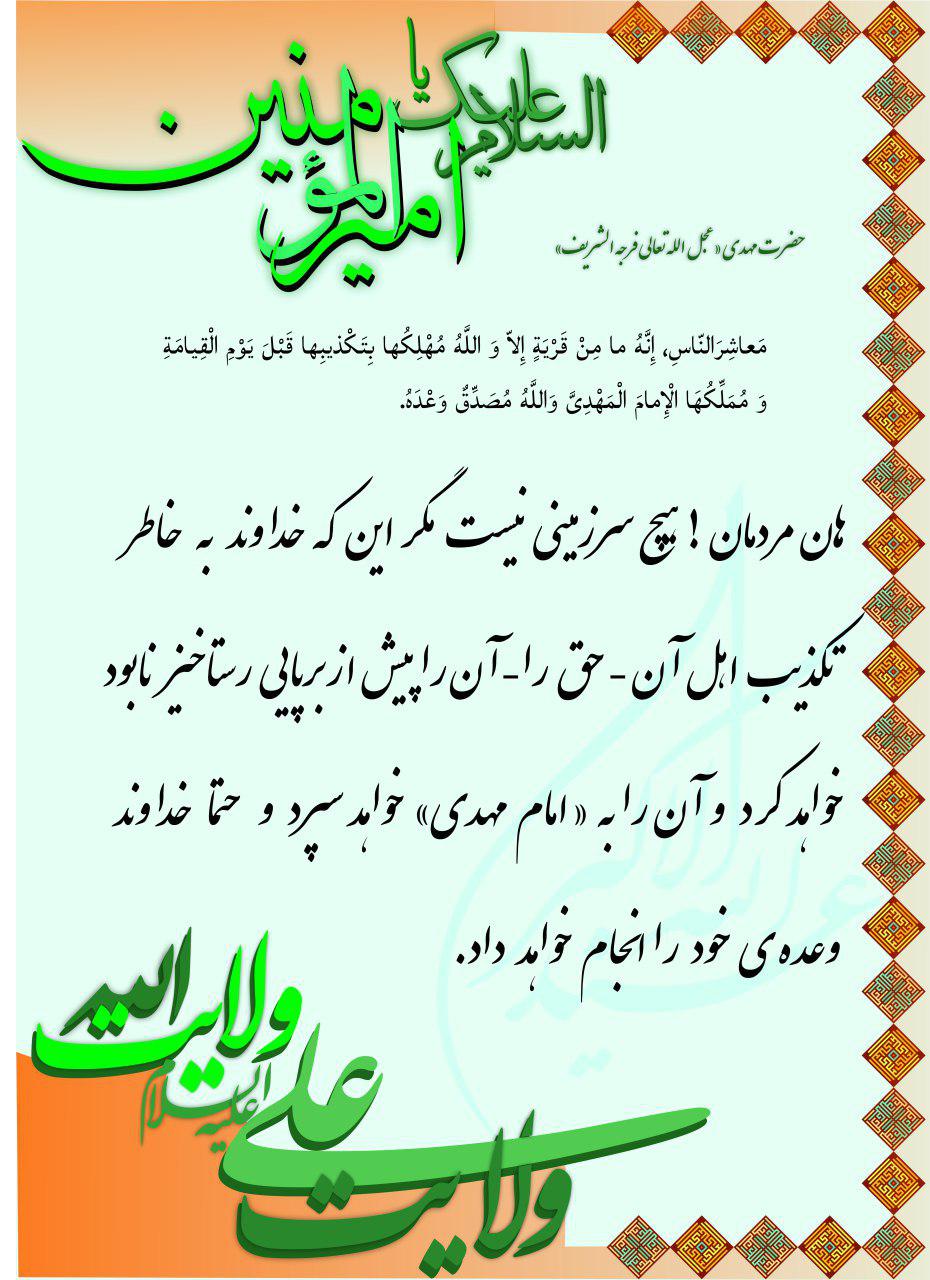 السلام علیک یا
امیرالمؤمنین
حضرت مهدی «عجل الله تعالی فرجه الشریف»
مَعاشِرَالنّاسِ، إِنَّهُ ما مِنْ قَرْيَةٍ إِلاّ وَ اللَّهُ مُهْلِكُها بِتَكْذيبِها قَبْلَ يَوْمِ الْقِيامَةِ
وَ مُمَلِّكُهَا الْإِمامَ الْمَهْدِىَّ وَاللَّهُ مُصَدِّقٌ وَعْدَهُ.
هان مردمان ! هیچ سرزمینی نیست مگر این که خداوند به خاطر
تکذیب اهل آن - حق را-آن را پیش از برپایی رستاخیز نابود
خواهد کرد و آن را به « امام مهدی» خواهد سپرد و حتما خداوند
وعده‌ی خود را انجام خواهد داد.
ولایت الله
ولایت علی علیه السلام